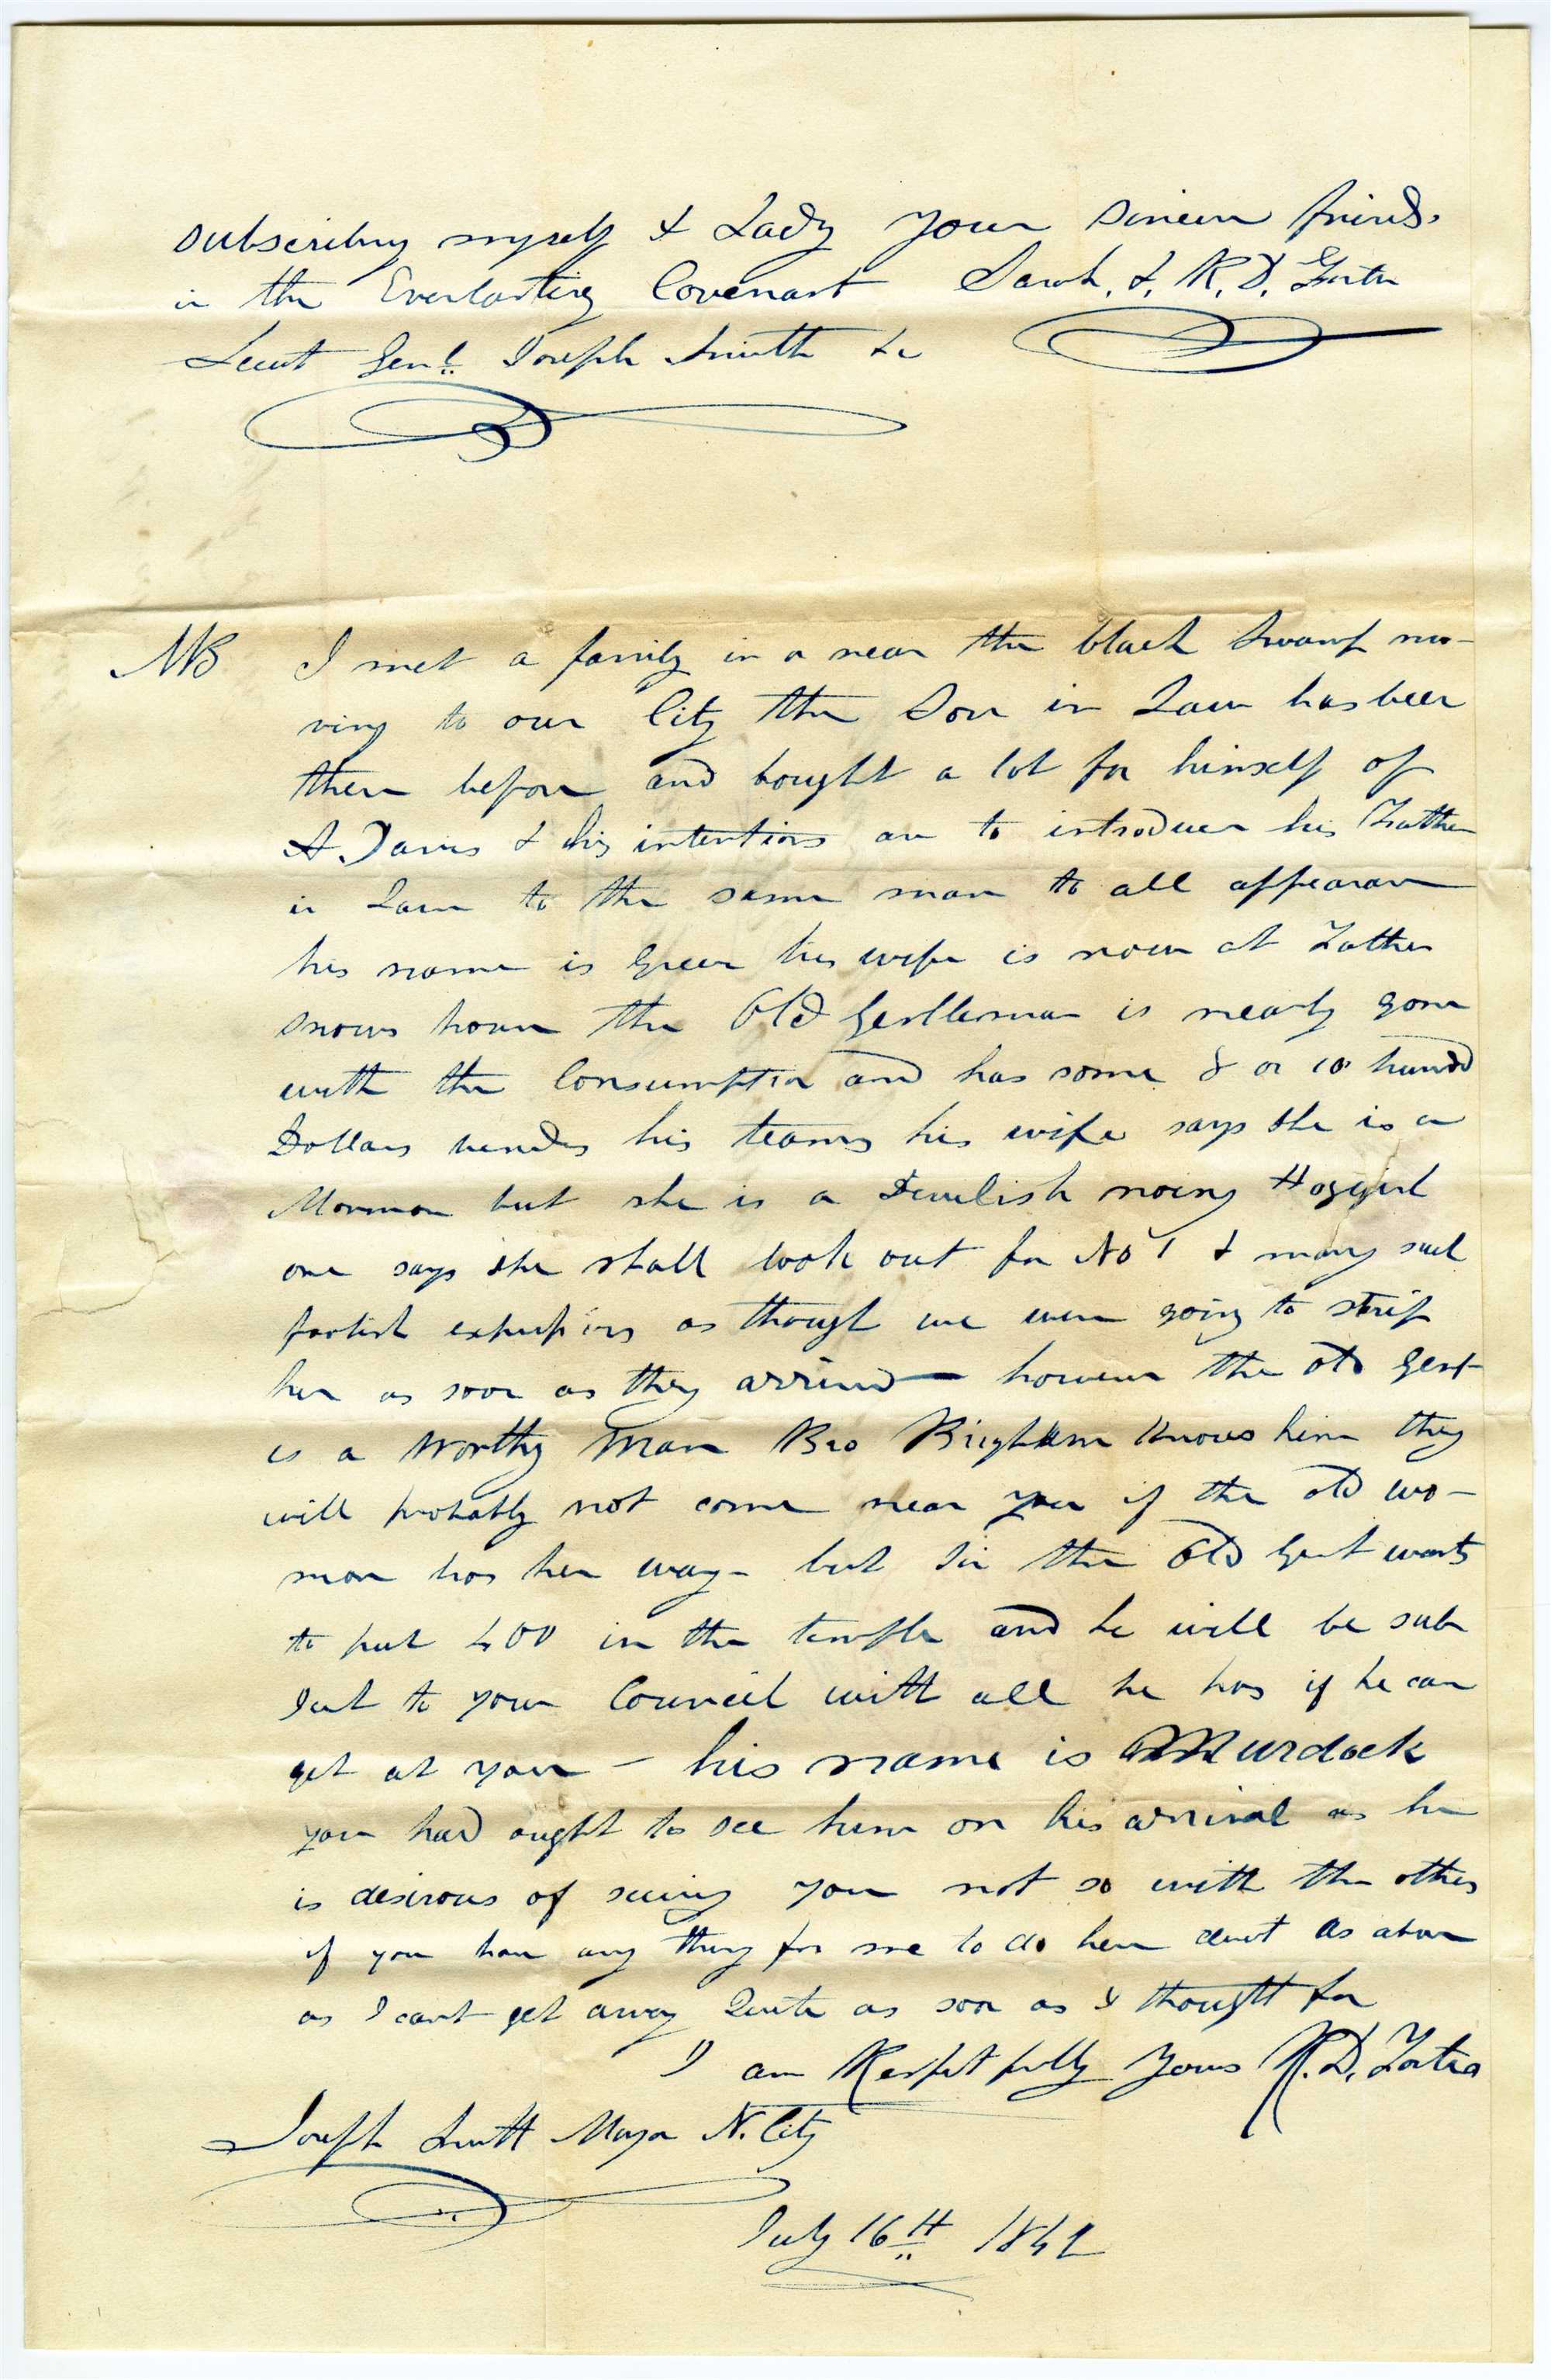 subscribing myself & Lady your sincere friends.
in the Everlasting Covenant Sarah. &. R. D. Foster
Leeut Genl. Joseph Smith &c
NB I met a family in or near the black Swamp mo-
ving to our City the Son in Law has been
there before and bought a lot for himself of
A. Davis & his intentions are to introduce his Father
in Law to the same man to all appearance
his name is Green his wife is now at Father
snows house the Old Gentleman is nearly gone
with the Consumption and has some 8 or 10 hundd
Dollars besides his teams his wife says she is a
Mormon but she is a Devilish noing
one says she shall look out for No 1 & many such
foolish expressions as though we were going to strip
her as soon as they arrived — however the old Gent
is a Worthy Man Bro Brigham Knows him they
will probably not come near you if the old wo-
man has her way - but Sir the Old Gent wants
to put 400 in the temple and he will be sub
ject to your Council with all he has if he can
get at you — his name is Murdock
you had ought to see him on his arrival as he
is desirous of seeing you not so with the others
if you have any thing for me to do here direct as above
as I cant get away Quite as soon as I thought for
I am Respetfully Yours R. D. Foster
Joseph Smith Mayor N. City
July 16th 1842